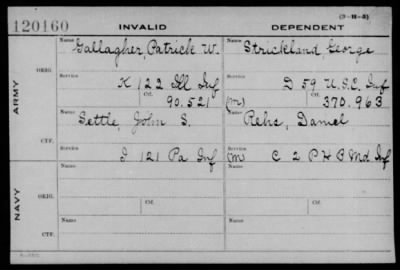 (3-11-3)
120160 INVALID DEPENDENT
ARMY
ORIG.
Name Gallagher, Patrick W.
Name Strickland, George
Service K 122 Ill Inf
Service D 59 U.S.C. Inf
Ctf. 90.521
(M) Ctf. 370.963
CTF.
Name Settle, John S.
Name Rehs, Daniel
Service I 121 Pa Inf
Service (M) C 2 P H B Md Inf
NAVY
ORIG.
Name
Name
Ctf.
Ctf.
CTF.
Name
Name